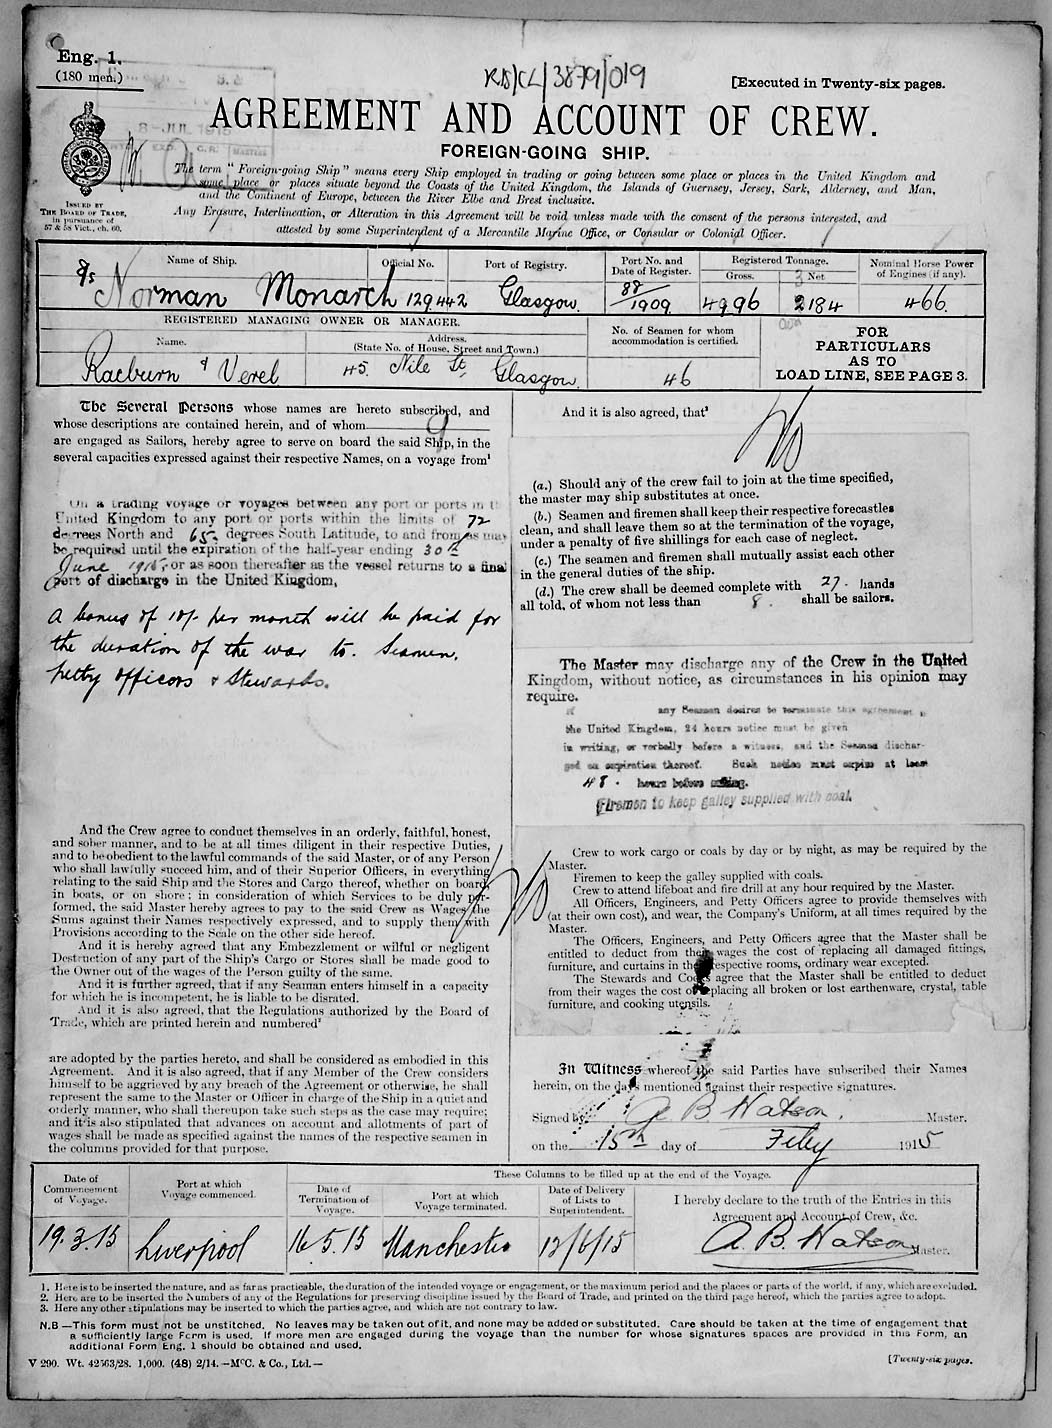 Eng. 1.
(180 men.)
RS/CL/3879/019
[Executed in Twenty-six pages.
8-JUL 1915
AGREEMENT AND ACCOUNT OF CREW.
FOREIGN-GOING SHIP.
The term "Foreign-going Ship" means every Ship employed in trading or going between some place or places in the United Kingdom and
some place or places situate beyond the Coasts of the United Kingdom, the Islands of Guernsey, Jersey, Sark, Alderney, and Man,
and the Continent of Europe, between the River Elbe and Brest inclusive.
Any Erasure, Interlineation, or Alteration in this Agreement will be void unless made with the consent of the persons interested, and
attested by some Superintendent of a Mercantile Marine Office, or Consular or Colonial Officer.
ISSUED BY
THE BOARD OF TRADE,
in pursuance of
57 & 58 Vict., ch. 60.
Name of Ship.
Official No.
Port of Registry.
Port No. and
Date of Register.
Registered Tonnage.
Gross.
Net
Nominal Horse Power
of Engines (if any).
S/S Norman Monarch
129.442
Glasgow.
88/1909
4996
3184
466.
REGISTERED MANAGING OWNER OR MANAGER.
Name.
Address.
(State No. of House, Street and Town.)
No. of Seamen for whom
accommodation is certified.
FOR
PARTICULARS
AS TO
LOAD LINE, SEE PAGE 3.
Raeburn & Verel
45. Nile St. Glasgow.
46
The Several Persons whose names are hereto subscribed, and
whose descriptions are contained herein, and of whom 9
are engaged as Sailors, hereby agree to serve on board the said Ship, in the
several capacities expressed against their respective Names, on a voyage from¹
On a trading voyage or voyages between any port or ports in t
United Kingdom to any port or ports within the limits of 72
degrees North and 65 degrees South Latitude, to and from as may
be required until the expiration of the half-year ending 30th
June 1915, or as soon thereafter as the vessel returns to a final
port of discharge in the United Kingdom,
A bonus of 10/- per month will be paid for
the duration of the war to Seamen,
petty officers & Stewards.
And the Crew agree to conduct themselves in an orderly, faithful, honest,
and sober manner, and to be at all times diligent in their respective Duties,
and to be obedient to the lawful commands of the said Master, or of any Person
who shall lawfully succeed him, and of their Superior Officers, in everything
relating to the said Ship and the Stores and Cargo thereof, whether on board,
in boats, or on shore; in consideration of which Services to be duly per-
formed, the said Master hereby agrees to pay to the said Crew as Wages the
Sums against their Names respectively expressed, and to supply them with
Provisions according to the Scale on the other side hereof.
And it is hereby agreed that any Embezzlement or wilful or negligent
Destruction of any part of the Ship's Cargo or Stores shall be made good to
the Owner out of the wages of the Person guilty of the same.
And it is further agreed, that if any Seaman enters himself in a capacity
for which he is incompetent, he is liable to be disrated.
And it is also agreed, that the Regulations authorized by the Board of
Trade, which are printed herein and numbered²
are adopted by the parties hereto, and shall be considered as embodied in this
Agreement. And it is also agreed, that if any Member of the Crew considers
himself to be aggrieved by any breach of the Agreement or otherwise, he shall
represent the same to the Master or Officer in charge of the Ship in a quiet and
orderly manner, who shall thereupon take such steps as the case may require;
and it is also stipulated that advances on account and allotments of part of
wages shall be made as specified against the names of the respective seamen in
the columns provided for that purpose.
And it is also agreed, that³
No
(a.) Should any of the crew fail to join at the time specified,
the master may ship substitutes at once.
(b.) Seamen and firemen shall keep their respective forecastles
clean, and shall leave them so at the termination of the voyage,
under a penalty of five shillings for each case of neglect.
(c.) The seamen and firemen shall mutually assist each other
in the general duties of the ship.
(d.) The crew shall be deemed complete with 27 hands
all told, of whom not less than 8. shall be sailors.
The Master may discharge any of the Crew in the United
Kingdom, without notice, as circumstances in his opinion may
require.
If any Seaman desires to terminate this agreement
the United Kingdom, 24 hours notice must be given
in writing, or verbally before a witness, and the Seaman dischar-
ged on expiration thereof. Such notice must expire at least
48 hours before sailing.
Firemen to keep galley supplied with coal.
No
Crew to work cargo or coals by day or by night, as may be required by the
Master.
Firemen to keep the galley supplied with coals.
Crew to attend lifeboat and fire drill at any hour required by the Master.
All Officers, Engineers, and Petty Officers agree to provide themselves with
(at their own cost), and wear, the Company's Uniform, at all times required by the
Master.
The Officers, Engineers, and Petty Officers agree that the Master shall be
entitled to deduct from their wages the cost of replacing all damaged fittings,
furniture, and curtains in their respective rooms, ordinary wear excepted.
The Stewards and Cooks agree that the Master shall be entitled to deduct
from their wages the cost of replacing all broken or lost earthenware, crystal, table
furniture, and cooking utensils.
In Witness whereof the said Parties have subscribed their Names
herein, on the days mentioned against their respective signatures.
Signed by A. B. Watson. Master.
on the 15th day of Feby 1915
These Columns to be filled up at the end of the Voyage.
Date of
Commencement
of Voyage.
Port at which
Voyage commenced.
Date of
Termination of
Voyage.
Port at which
Voyage terminated.
Date of Delivery
of Lists to
Superintendent.
I hereby declare to the truth of the Entries in this
Agreement and Account of Crew, &c.
19.3.15
Liverpool
16.5.15
Manchester
12/6/15
A. B. Watson Master.
1. Here is to be inserted the nature, and as far as practicable, the duration of the intended voyage or engagement, or the maximum period and the places or parts of the world, if any, which are excluded.
2. Here are to be inserted the Numbers of any of the Regulations for preserving discipline issued by the Board of Trade, and printed on the third page hereof, which the parties agree to adopt.
3. Here any other stipulations may be inserted to which the parties agree, and which are not contrary to law.
N.B—This form must not be unstitched. No leaves may be taken out of it, and none may be added or substituted. Care should be taken at the time of engagement that
a sufficiently large Form is used. If more men are engaged during the voyage than the number for whose signatures spaces are provided in this Form, an
additional Form Eng. 1 should be obtained and used.
V 290. Wt. 42563/28. 1,000. (48) 2/14.—McC. & Co., Ltd.—
[Twenty-six pages.